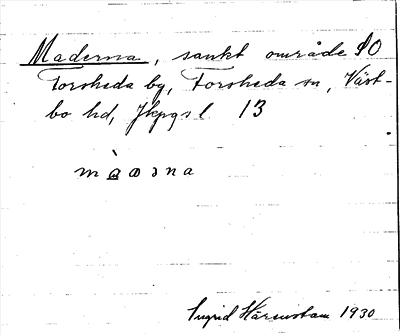 Maderna, sankt område SO
Forsheda by, Forsheda sn, Väst-
bo hd, Jkpgs l. 13
Ingrid Härenstam 1930